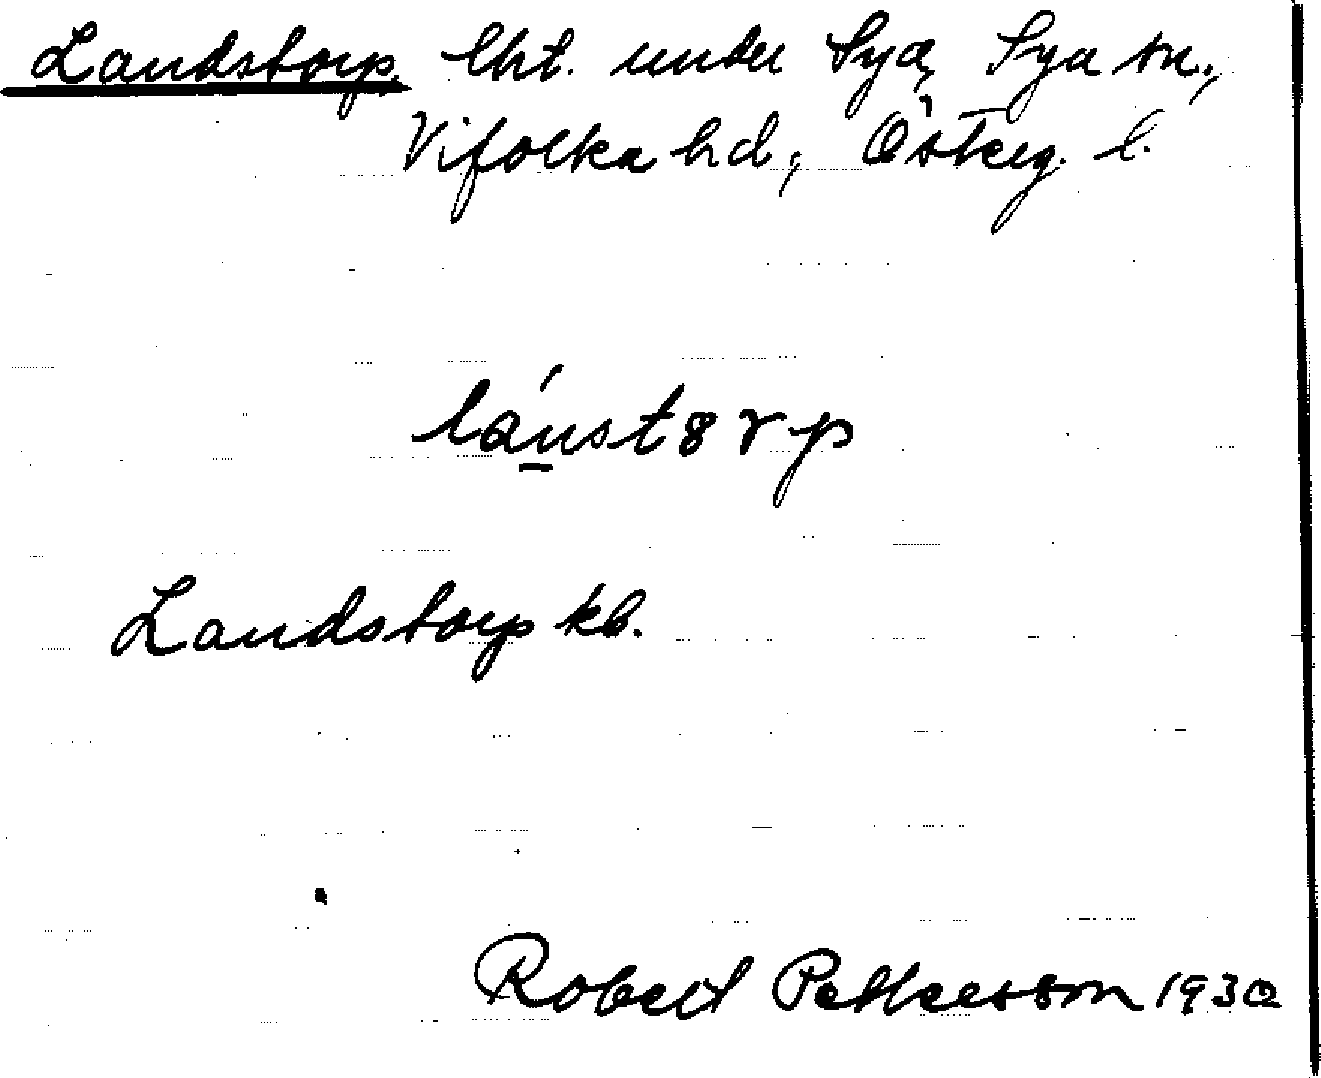 Landstorp, lht. under Sya, Sya sn.,
Vifolka hd, Österg. l.
lánst8rp
Landstorp kb.
Robert Pettersson 1930